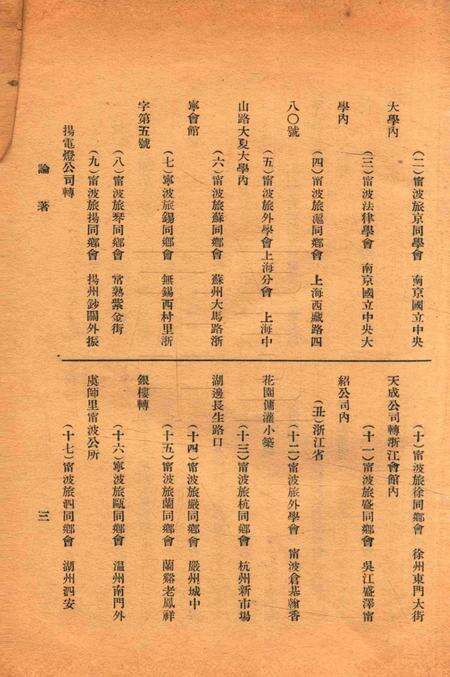 (二)甯波旅京同學會　南京國立中央
大學內
(三)甯波法律學會　南京國立中央大
學內
(四)甯波旅滬同鄉會　上海西藏路四
八〇號
(五)甯波旅外學會上海分會　上海中
山路大夏大學內
(六)甯波旅蘇同鄉會　蘇州大馬路浙
寧會館
(七)寧波旅錫同鄉會　無錫西村里浙
字第五號
(八)甯波旅琴同鄉會　常熟紫金街
(九)甯波旅揚同鄉會　揚州鈔關外振
揚電燈公司轉
論著
(十)甯波旅徐同鄉會　徐州東門大街
天成公司轉浙江會館內
(十一)甯波旅盛同鄉會　吳江盛澤甯
紹公司內
(丑)浙江省
(十二)甯波旅外學會　甯波倉基翰香
花園傭灌小築
(十三)甯波旅杭同鄉會　杭州新市場
湖邊長生路口
(十四)甯波旅嚴同鄉會　嚴州城中
(十五)甯波旅蘭同鄉會　蘭谿老鳳祥
銀樓轉
(十六)寧波旅甌同鄉會　溫州南門外
虞師里甯波公所
(十七)甯波旅泗同鄉會　湖州泗安
三